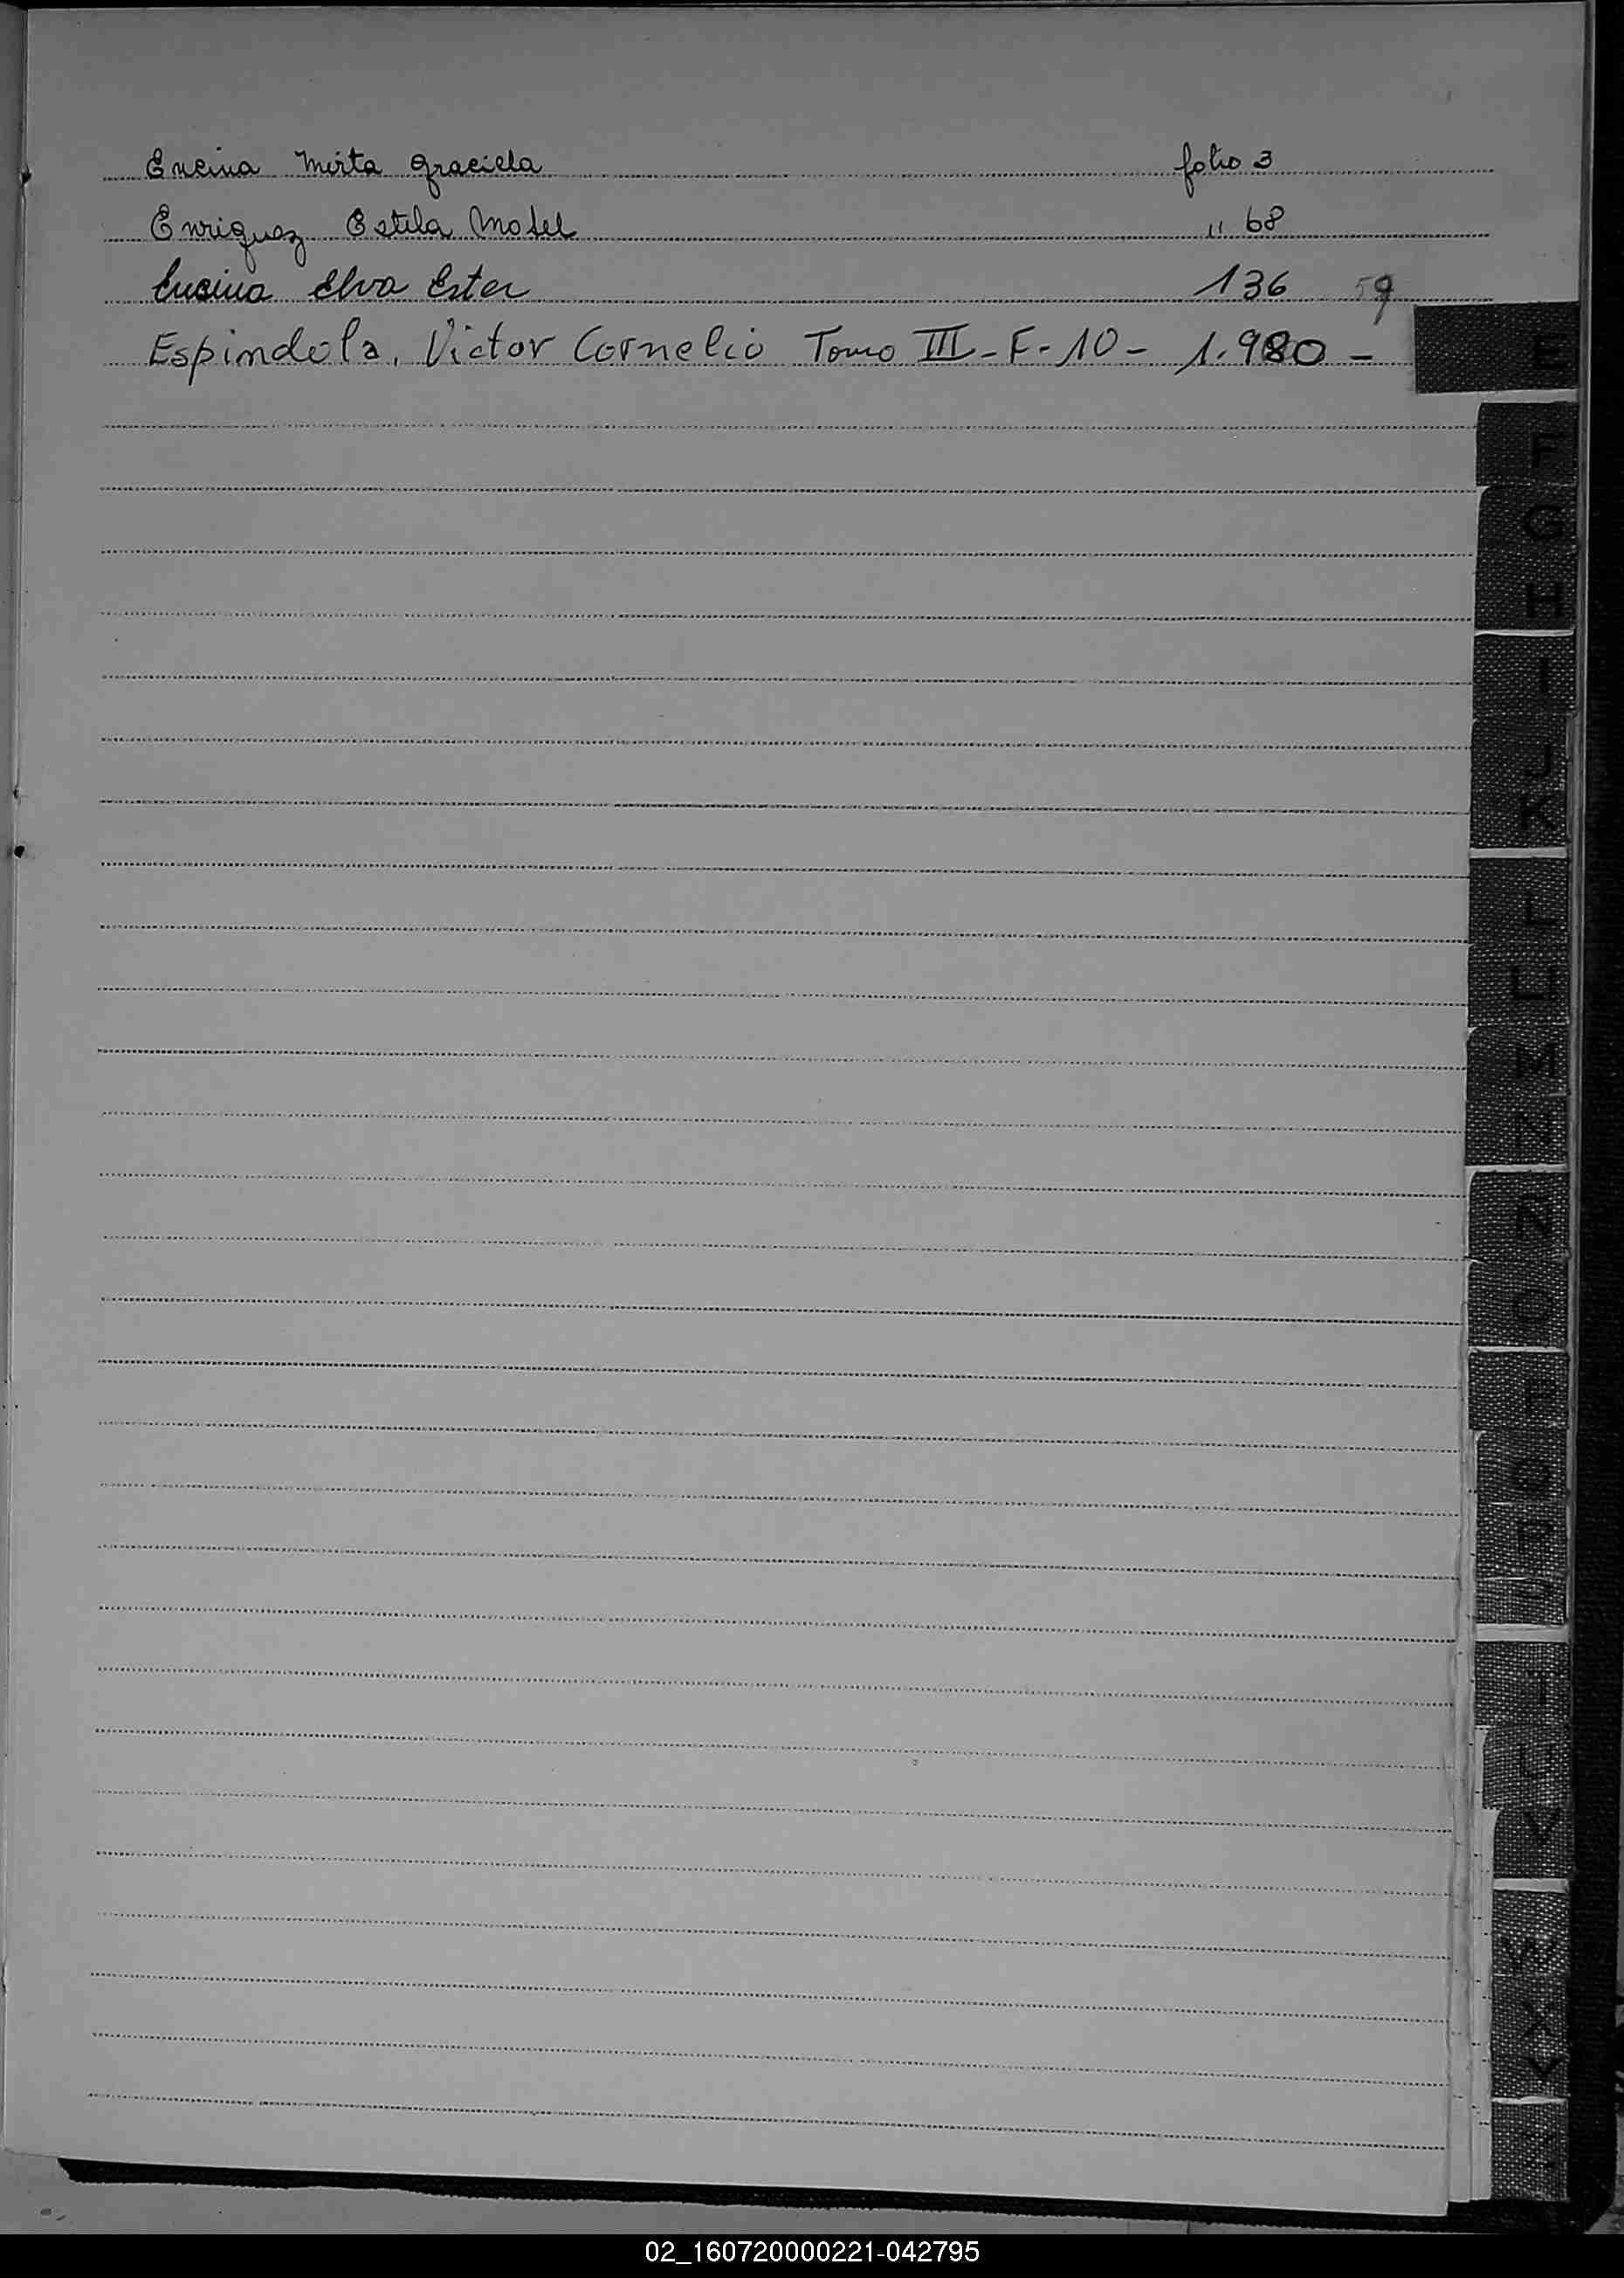 Encina Mirta Graciela folio 3
Enriquez Estela Mabel " 68
Encina Elva Ester 136 59
Espindola, Victor Cornelio Tomo III - F - 10 - 1.980 -
E
F
G
H
I
J
K
L
LL
M
N
Ñ
O
P
Q
R
S
T
U
V
W
X
Y
Z
02_160720000221-042795